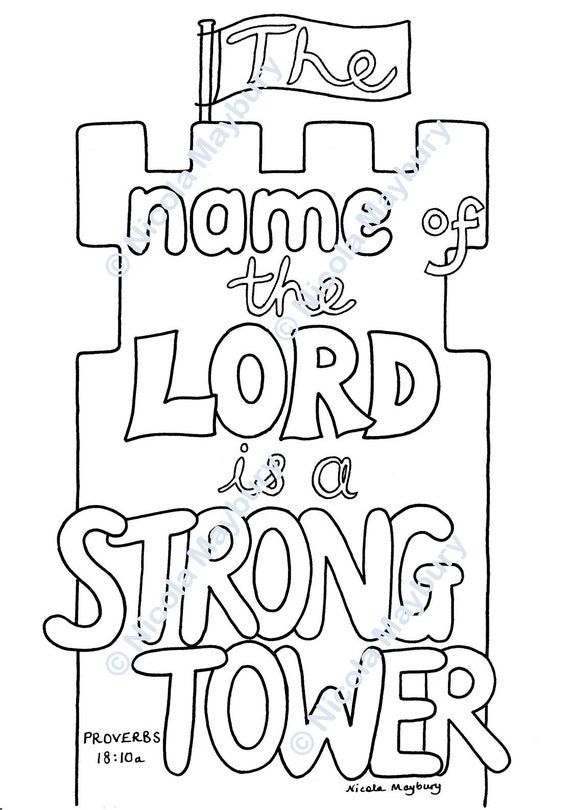 The
name of
the
LORD
is a
STRONG
TOWER
PROVERBS
18:10a
Nicola Maybury
© Nicola Maybury
© Nicola Maybury
© Nicola Maybury
© Nicola Maybury